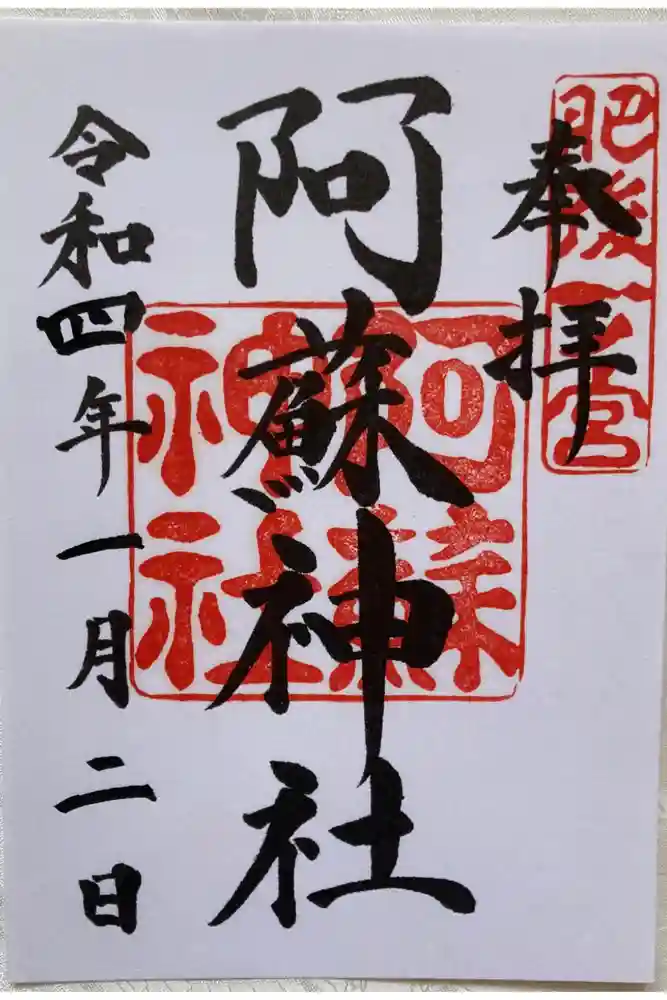 奉拝
肥後一之宮
阿蘇神社
阿蘇神社
令和四年一月二日